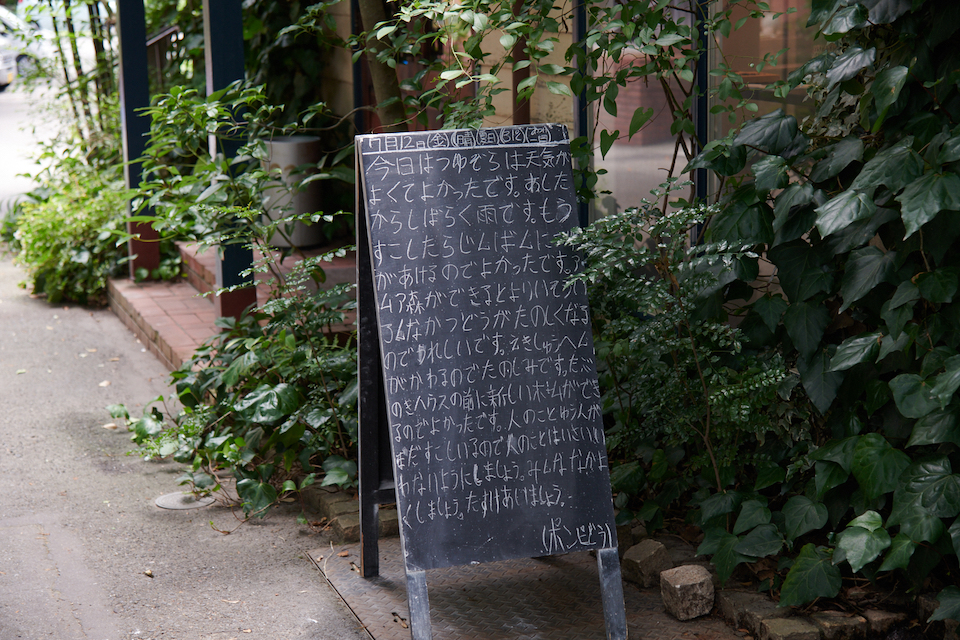 7月12日(金)(晴)
今日はつゆぞらは天気が
よくてよかったです。あした
からしばらく雨です。もう
すこしたらじムばムに
があけるのでよかったです。
ム了森ができるとよりいそ
なかつどうがたのしくなる
のでうれしいです。
がかわるのでたのしみです。
の前に新しい ができ
るのでよかったです。人のこと
まだすこしいるので人のことはいさいい
わないようにしましょう。みんななかよ
くしましょう。たすけあいましょう。
(ポンどどう)